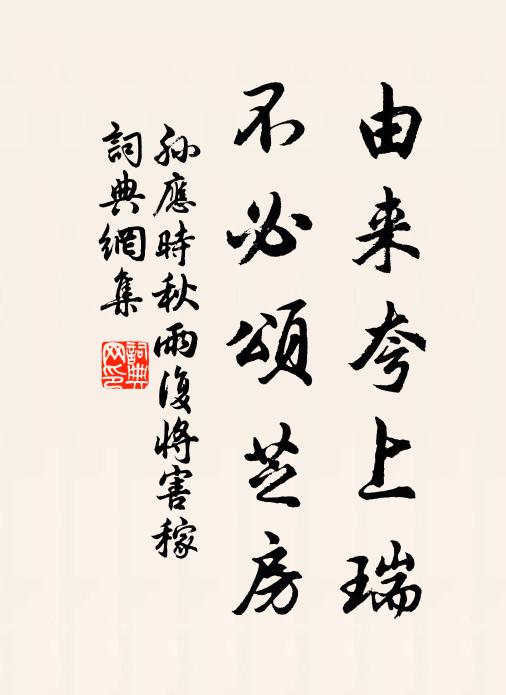 由来夸上瑞
不必頌芝房
孙應時秋雨復將害稼
詞典網集
詞典网印